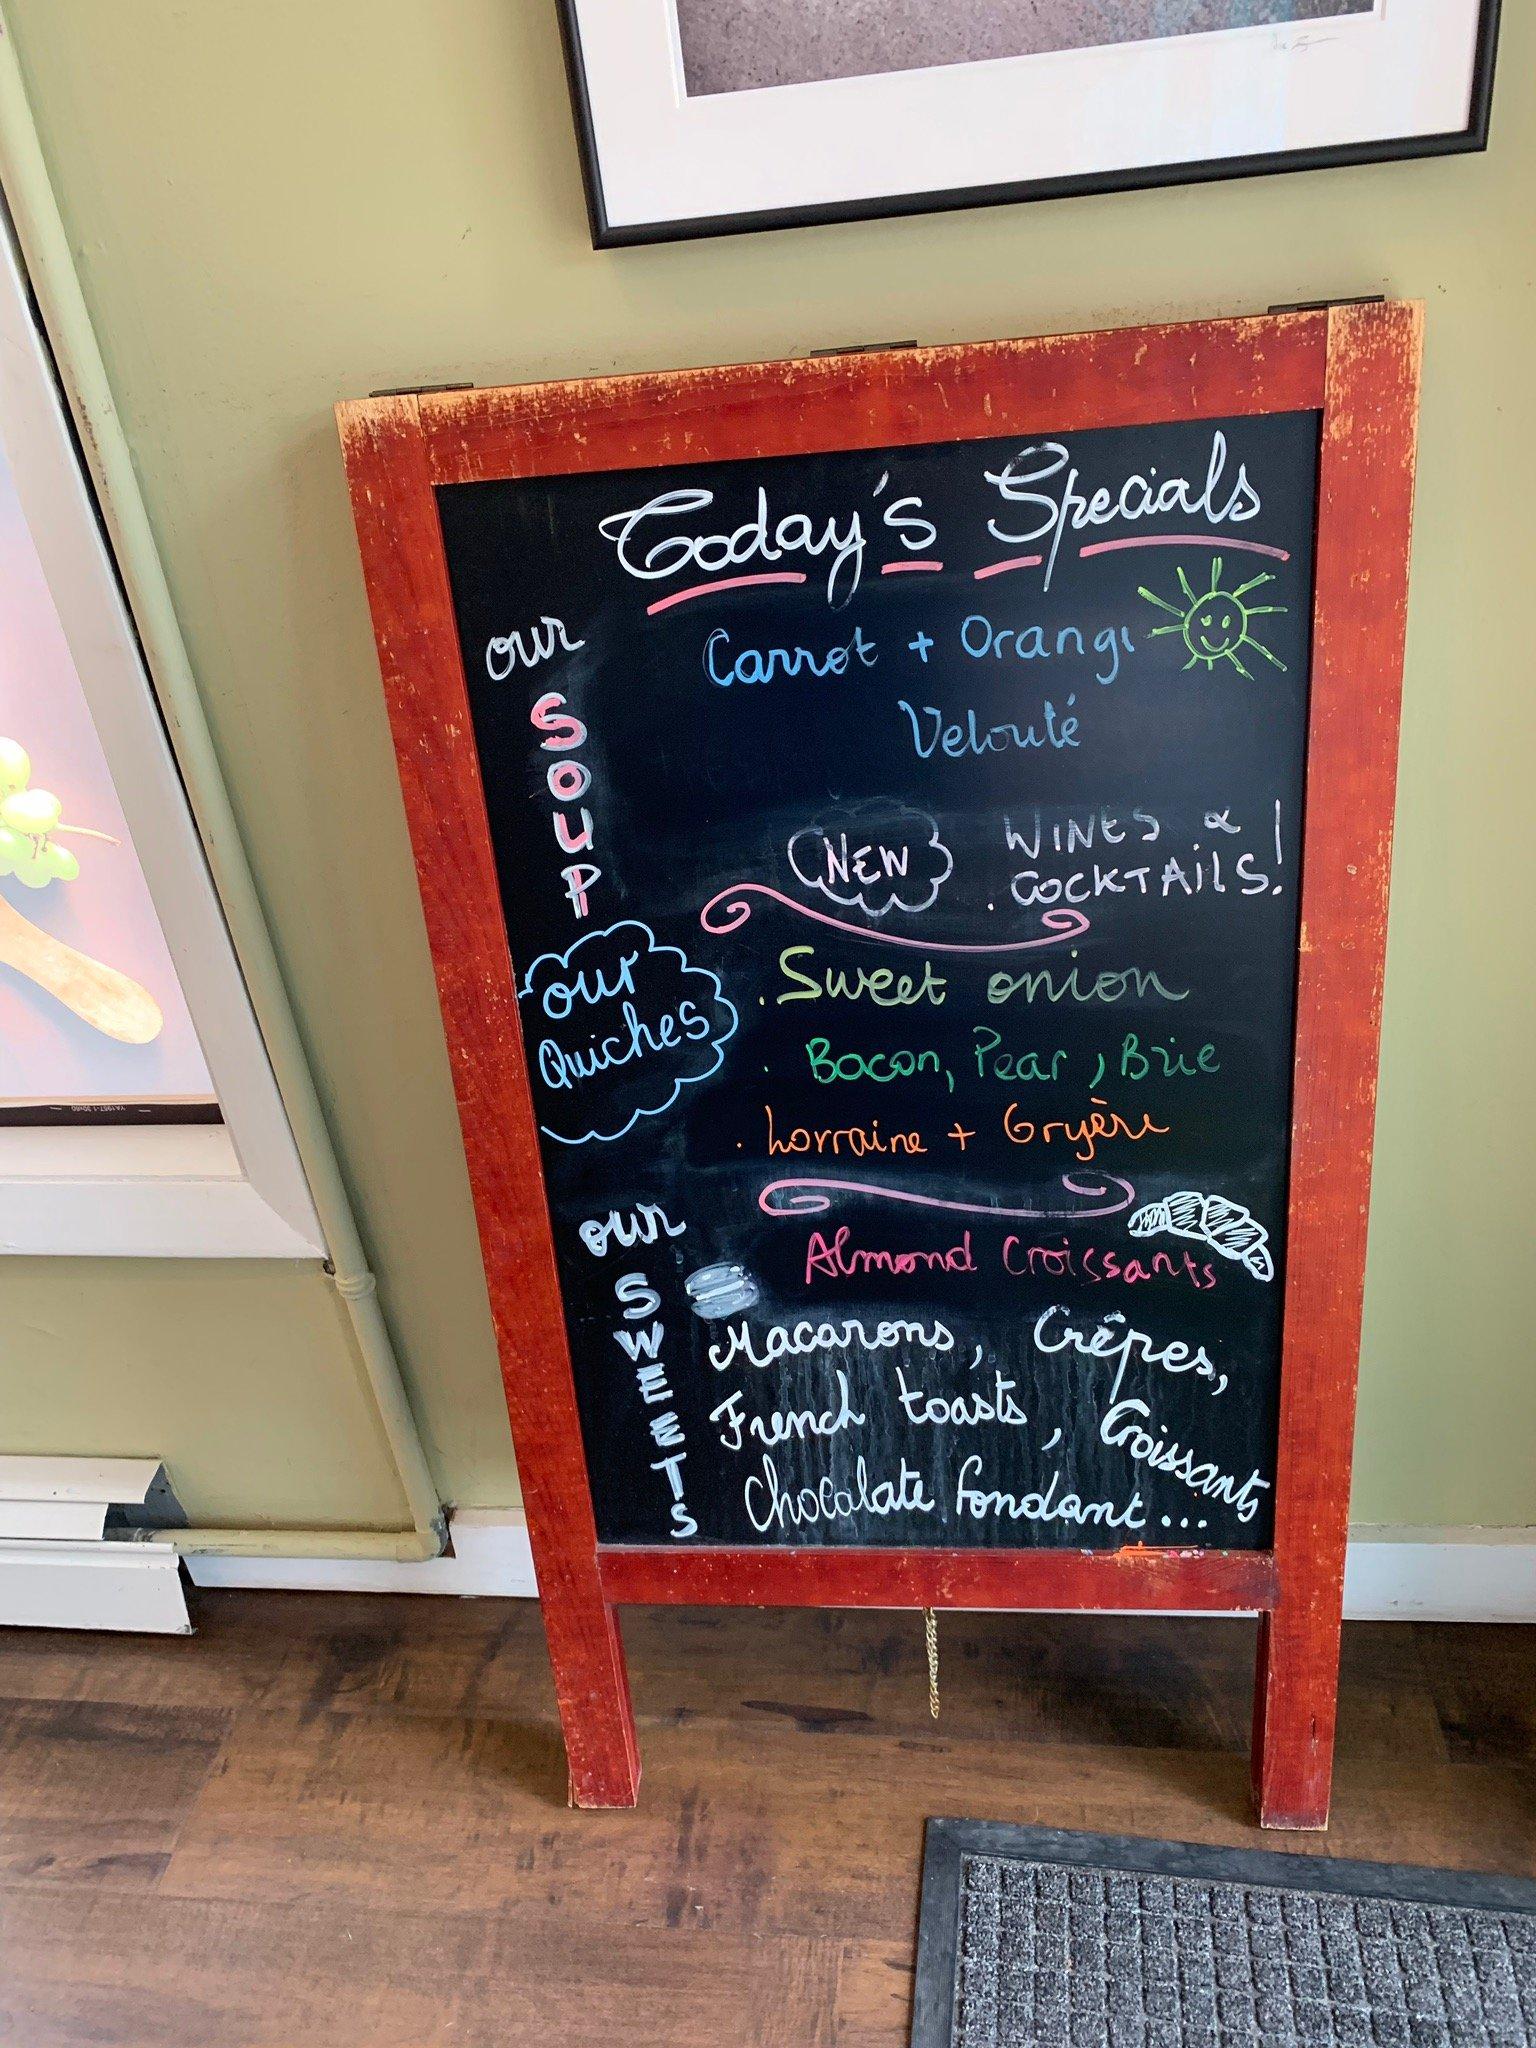 Today's Specials
our
SOUP
Carrot + Orange
Velouté
NEW
WINES &
COCKTAILS!
our
Quiches
. Sweet onion
. Bacon, Pear, Brie
. Lorraine + Gryère
our
SWEETS
Almond Croissants
Macarons, Crêpes,
French toasts, Croissants
Chocolate fondant...
YA1957-1 30x60